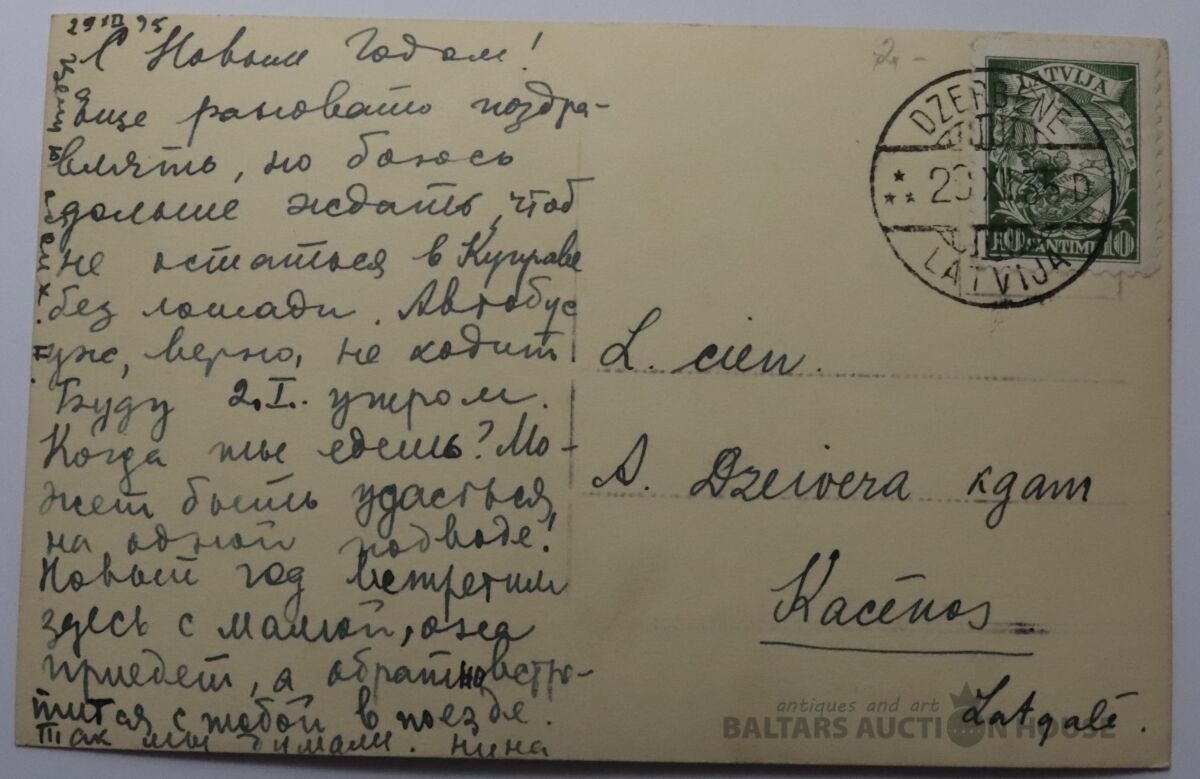 29 XII 35
С Новым Годом!
Еще рановато поздра-
влять, но боюсь
дольше ждать, чтоб
не остаться в Куправе
без лошади. Автобус
уж, верно, не ходит
Буду 2.I. утром.
Когда ты едешь? Мо-
жет быть удасться
на одной подводе!
Новый год встретим
здесь с мамой, она
приедет, а обратно встре-
тится с тобой в поезде.
Так мы думали. Нина
LATVIJA
10 SANTIMI 10
DZERBENE
LATVIJA
2.-
L. cien.
A. Dzeivera kgam
Kacēnos
Latgalē.
antiques and art
BALTARS AUCTION HOUSE